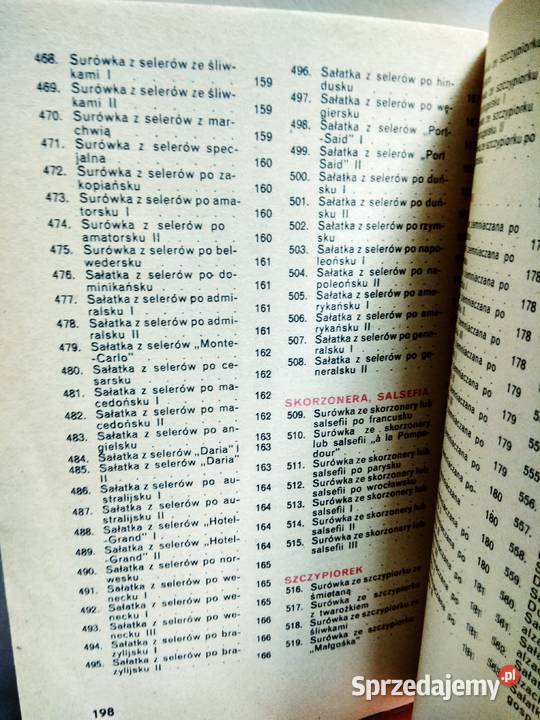 468. Surówka z selerów ze śliw-
kami I 159
469. Surówka z selerów ze śliw-
kami II 159
470. Surówka z selerów z mar-
chwią 159
471. Surówka z selerów spec-
jalna 160
472. Surówka z selerów po za-
kopiańsku 160
473. Surówka z selerów po ama-
torsku I 160
474. Surówka z selerów po
amatorsku II 160
475. Surówka z selerów po bel-
wedersku 160
476. Sałatka z selerów po do-
minikańsku 161
477. Sałatka z selerów po admi-
ralsku I 161
478. Sałatka z selerów po admi-
ralsku II 161
479. Sałatka z selerów „Monte-
-Carlo" 162
480. Sałatka z selerów po ce-
sarsku 162
481. Sałatka z selerów po ma-
cedońsku I 162
482. Sałatka z selerów po ma-
cedońsku II 162
483. Sałatka z selerów po an-
gielsku 163
484. Sałatka z selerów „Daria" I 163
485. Sałatka z selerów „Daria"
II 163
486. Sałatka z selerów po au-
stralijsku I 164
487. Sałatka z selerów po au-
stralijsku II 164
488. Sałatka z selerów „Hotel-
-Grand" I 164
489. Sałatka z selerów „Hotel-
-Grand" II 164
490. Sałatka z selerów po nor-
wesku 165
491. Sałatka z selerów po we-
neсku I 165
492. Sałatka z selerów po we-
necku I 165
493. Sałatka z selerów po we-
necku III 165
494. Sałatka z selerów po bra-
zylijsku I 166
495. Sałatka z selerów po bra-
zylijsku II 166
198
496. Sałatka z selerów po hin-
dusku
497. Sałatka z selerów po wę-
giersku
498. Sałatka z selerów „Port-
-Said" I
499. Sałatka z selerów „Port
Said" II
500. Sałatka z selerów po duń-
sku I
501. Sałatka z selerów po duń-
sku II
502. Sałatka z selerów po rzym-
sku
503. Sałatka z selerów po napo-
leońsku I
504. Sałatka z selerów po na-
poleońsku II
505. Sałatka z selerów po ame-
rykańsku I
506. Sałatka z selerów po ame-
rykańsku II
507. Sałatka z selerów po gene-
ralsku I
508. Sałatka z selerów po ge-
neralsku II
SKORZONERA, SALSEFIA
509. Surówka ze skorzonery lub
salsefii po francusku
510. Surówka ze skorzonery
lub salsefii „à la Pompa-
dour"
511. Surówka ze skorzonery lub
salsefii po parysku
512. Surówka ze skorzonery lub
salsefii po wrocławsku
513. Surówka ze skorzonery lub
salsefii I
514. Surówka ze skorzonery lub
salsefii II
515. Surówka ze skorzonery lub
salsefii III
SZCZYPIOREK
516. Surówka ze szczypiorku ze
śmietaną
517. Surówka ze szczypiorku
z twarożkiem
518. Surówka ze szczypiorku ze
śliwkami
519. Surówka ze szczypiorku
"Małgośka"
ze szczypiorku
ze szczypiorku
ze szczypiorku po
178
178
178
178
179
179
179
180
180
180
180
181
555.
557.
558.
559.
560.
Sprzedajemy.pl